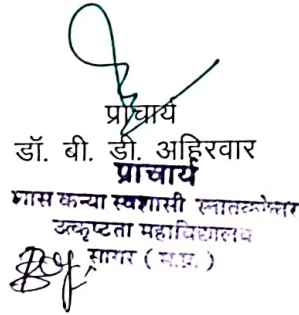 प्राचार्य
डॉ. बी. डी. अहिरवार
प्राचार्य
शास कन्या स्वशासी स्नातकोत्तर
उत्कृष्टता महाविद्यालय
सागर ( म.प्र. )